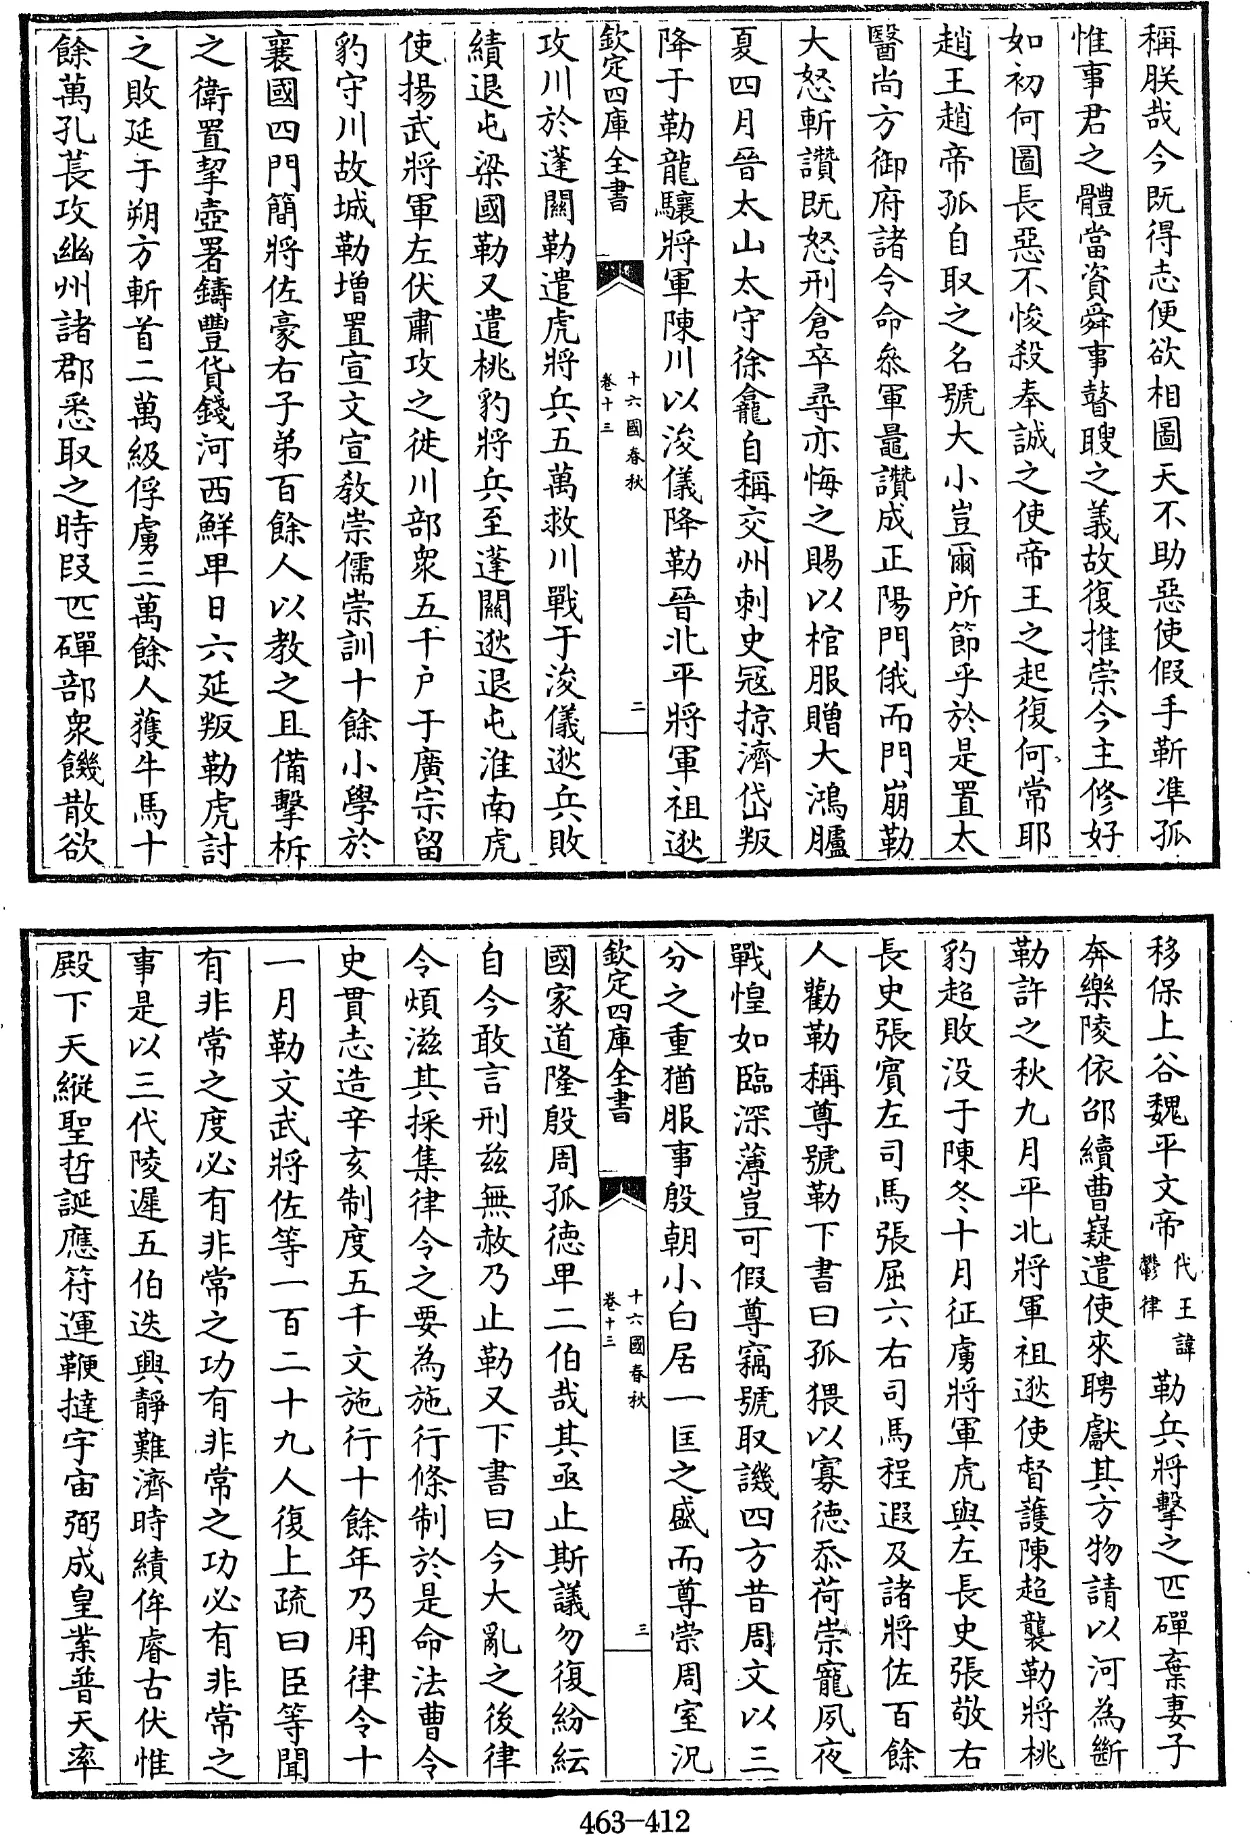 稱朕哉今既得志便欲相圖天不助惡使假手靳凖孤
惟事君之體當資舜事瞽瞍之義故復推崇今主修好
如初何圖長惡不悛殺奉誠之使帝王之起復何常耶
趙王趙帝孤自取之名號大小豈爾所節乎於是置太
醫尚方御府諸令命叅軍鼂讚成正陽門俄而門崩勒
大怒斬讚既怒刑倉卒尋亦悔之賜以棺服贈大鴻臚
夏四月晉太山太守徐龕自稱交州刺史冦掠濟岱叛
降于勒龍驤將軍陳川以浚儀降勒晉北平將軍祖逖
欽定四庫全書
十六國春秋
卷十三
二
攻川於蓬關勒遣虎將兵五萬救川戰于浚儀逖兵敗
績退屯梁國勒又遣桃豹將兵至蓬關逖退屯淮南虎
使揚武將軍左伏肅攻之徙川部衆五千户于廣宗留
豹守川故城勒增置宣文宣教崇儒崇訓十餘小學於
襄國四門簡將佐豪右子弟百餘人以教之且備擊柝
之衛置挈壺署鑄豐貨錢河西鮮卑日六延叛勒虎討
之敗延于朔方斬首二萬級俘虜三萬餘人獲牛馬十
餘萬孔萇攻幽州諸郡悉取之時段匹磾部衆饑散欲
移保上谷魏平文帝代王諱鬱律勒兵將擊之匹磾棄妻子
奔樂陵依邵續曹嶷遣使來聘獻其方物請以河為斷
勒許之秋九月平北將軍祖逖使督護陳超襲勒將桃
豹超敗没于陳冬十月征虜將軍虎與左長史張敬右
長史張賓左司馬張屈六右司馬程遐及諸將佐百餘
人勸勒稱尊號勒下書曰孤猥以寡徳忝荷崇寵夙夜
戰惶如臨深薄豈可假尊竊號取譏四方昔周文以三
分之重猶服事殷朝小白居一匡之盛而尊崇周室況
欽定四庫全書
十六國春秋
卷十三
三
國家道隆殷周孤徳卑二伯哉其亟止斯議勿復紛紜
自今敢言刑兹無赦乃止勒又下書曰今大亂之後律
令煩滋其採集律令之要為施行條制於是命法曹令
史貫志造辛亥制度五千文施行十餘年乃用律令十
一月勒文武將佐等一百二十九人復上疏曰臣等聞
有非常之度必有非常之功有非常之功必有非常之
事是以三代陵遲五伯迭興靜難濟時績侔睿古伏惟
殿下天縱聖哲誕應符運鞭撻宇宙弼成皇業普天率
463-412